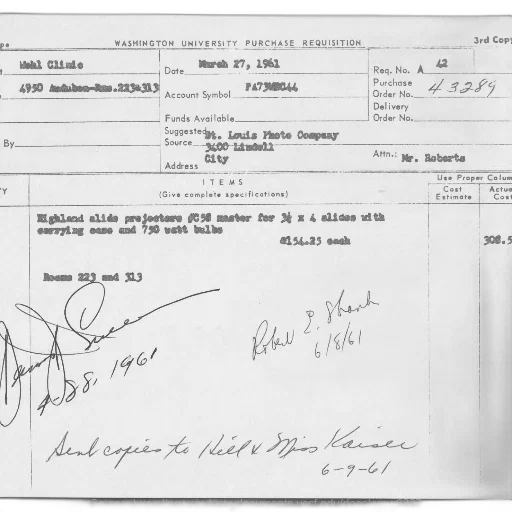 WASHINGTON UNIVERSITY PURCHASE REQUISITION
3rd Copy
Clinic
Date March 27, 1961
Req. No. A 42
4950 Audubon-Rms.223&313
Purchase
Order No. 43289
Account Symbol
Delivery
Order No.
Funds Available
By
Suggested St. Louis Photo Company
Source 3400 Lindell
Address City
Attn.: Mr. Roberts
TY
ITEMS
(Give complete specifications)
Use Proper Colum
Cost
Estimate
Actua
Cost
Highland slide projectors master for 3¼ x 4 slides with
carrying case and 750 watt bulbs
@154.25 each
308.5
Rooms 223 and 313
Robert E. Shank
6/8/61
1961
Sent copies to Hill & Miss Kaiser
6-9-61